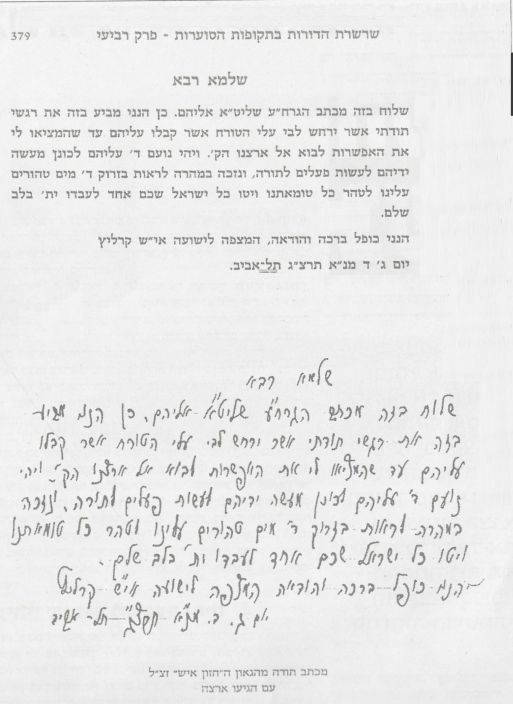 379
שרשרת הדורות בתקופות הסוערות - פרק רביעי
שלמא רבא
שלוח בזה מכתב הגרח"ע שליט"א אליהם. כן הנני מביע בזה את רגשי
תודתי אשר ירחש לבי עלי הטורח אשר קבלו עליהם עד שהמציאו לי
את האפשרות לבוא אל ארצנו הק'. ויהי נועם ד' עליהם לכונן מעשה
ידיהם לעשות פעלים לתורה, ונזכה במהרה לראות בזרוק ד' מים טהורים
עלינו לטהר כל טומאתנו ויטו כל ישראל שכם אחד לעבדו ית' בלב
שלם.
הנני כופל ברכה והודאה, המצפה לישועה אי"ש קרליץ
יום ג' ד מנ"א תרצ"ג תל-אביב.
שלמא רבא
שלוח בזה מכתב הגרח"ע שליט"א אליהם. כן הנני מביע
בזה את רגשי תודתי אשר ירחש לבי עלי הטורח אשר קבלו
עליהם עד שהמציאו לי את האפשרות לבוא אל ארצנו הק' ויהי
נועם ד' עליהם לכונן מעשה ידיהם לעשות פעלים לתורה, ונזכה
במהרה לראות בזרוק ד' מים טהורים עלינו וטהר כל טומאתנו
ויטו כל ישראל שכם אחד לעבדו ית' בלב שלם.
הנני כופל ברכה והודאה המצפה לישועה אי"ש קרליץ
יום ג. מנ"א תרצ"ג תל אביב
מכתב תודה מהגאון ה"חזון איש" זצ"ל
עם הגיעו ארצה